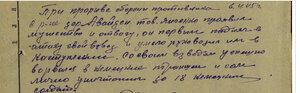 При прорыве обороны противника в
р-не гор. тов. проявил
мужество и отвагу, он первым поднял в
атаку свой взвод и умело руководил им в
наступлении. Со своим взводом успешно
ворвался в немецкие траншеи и сам
лично уничтожил до 18 немецких
солдат.